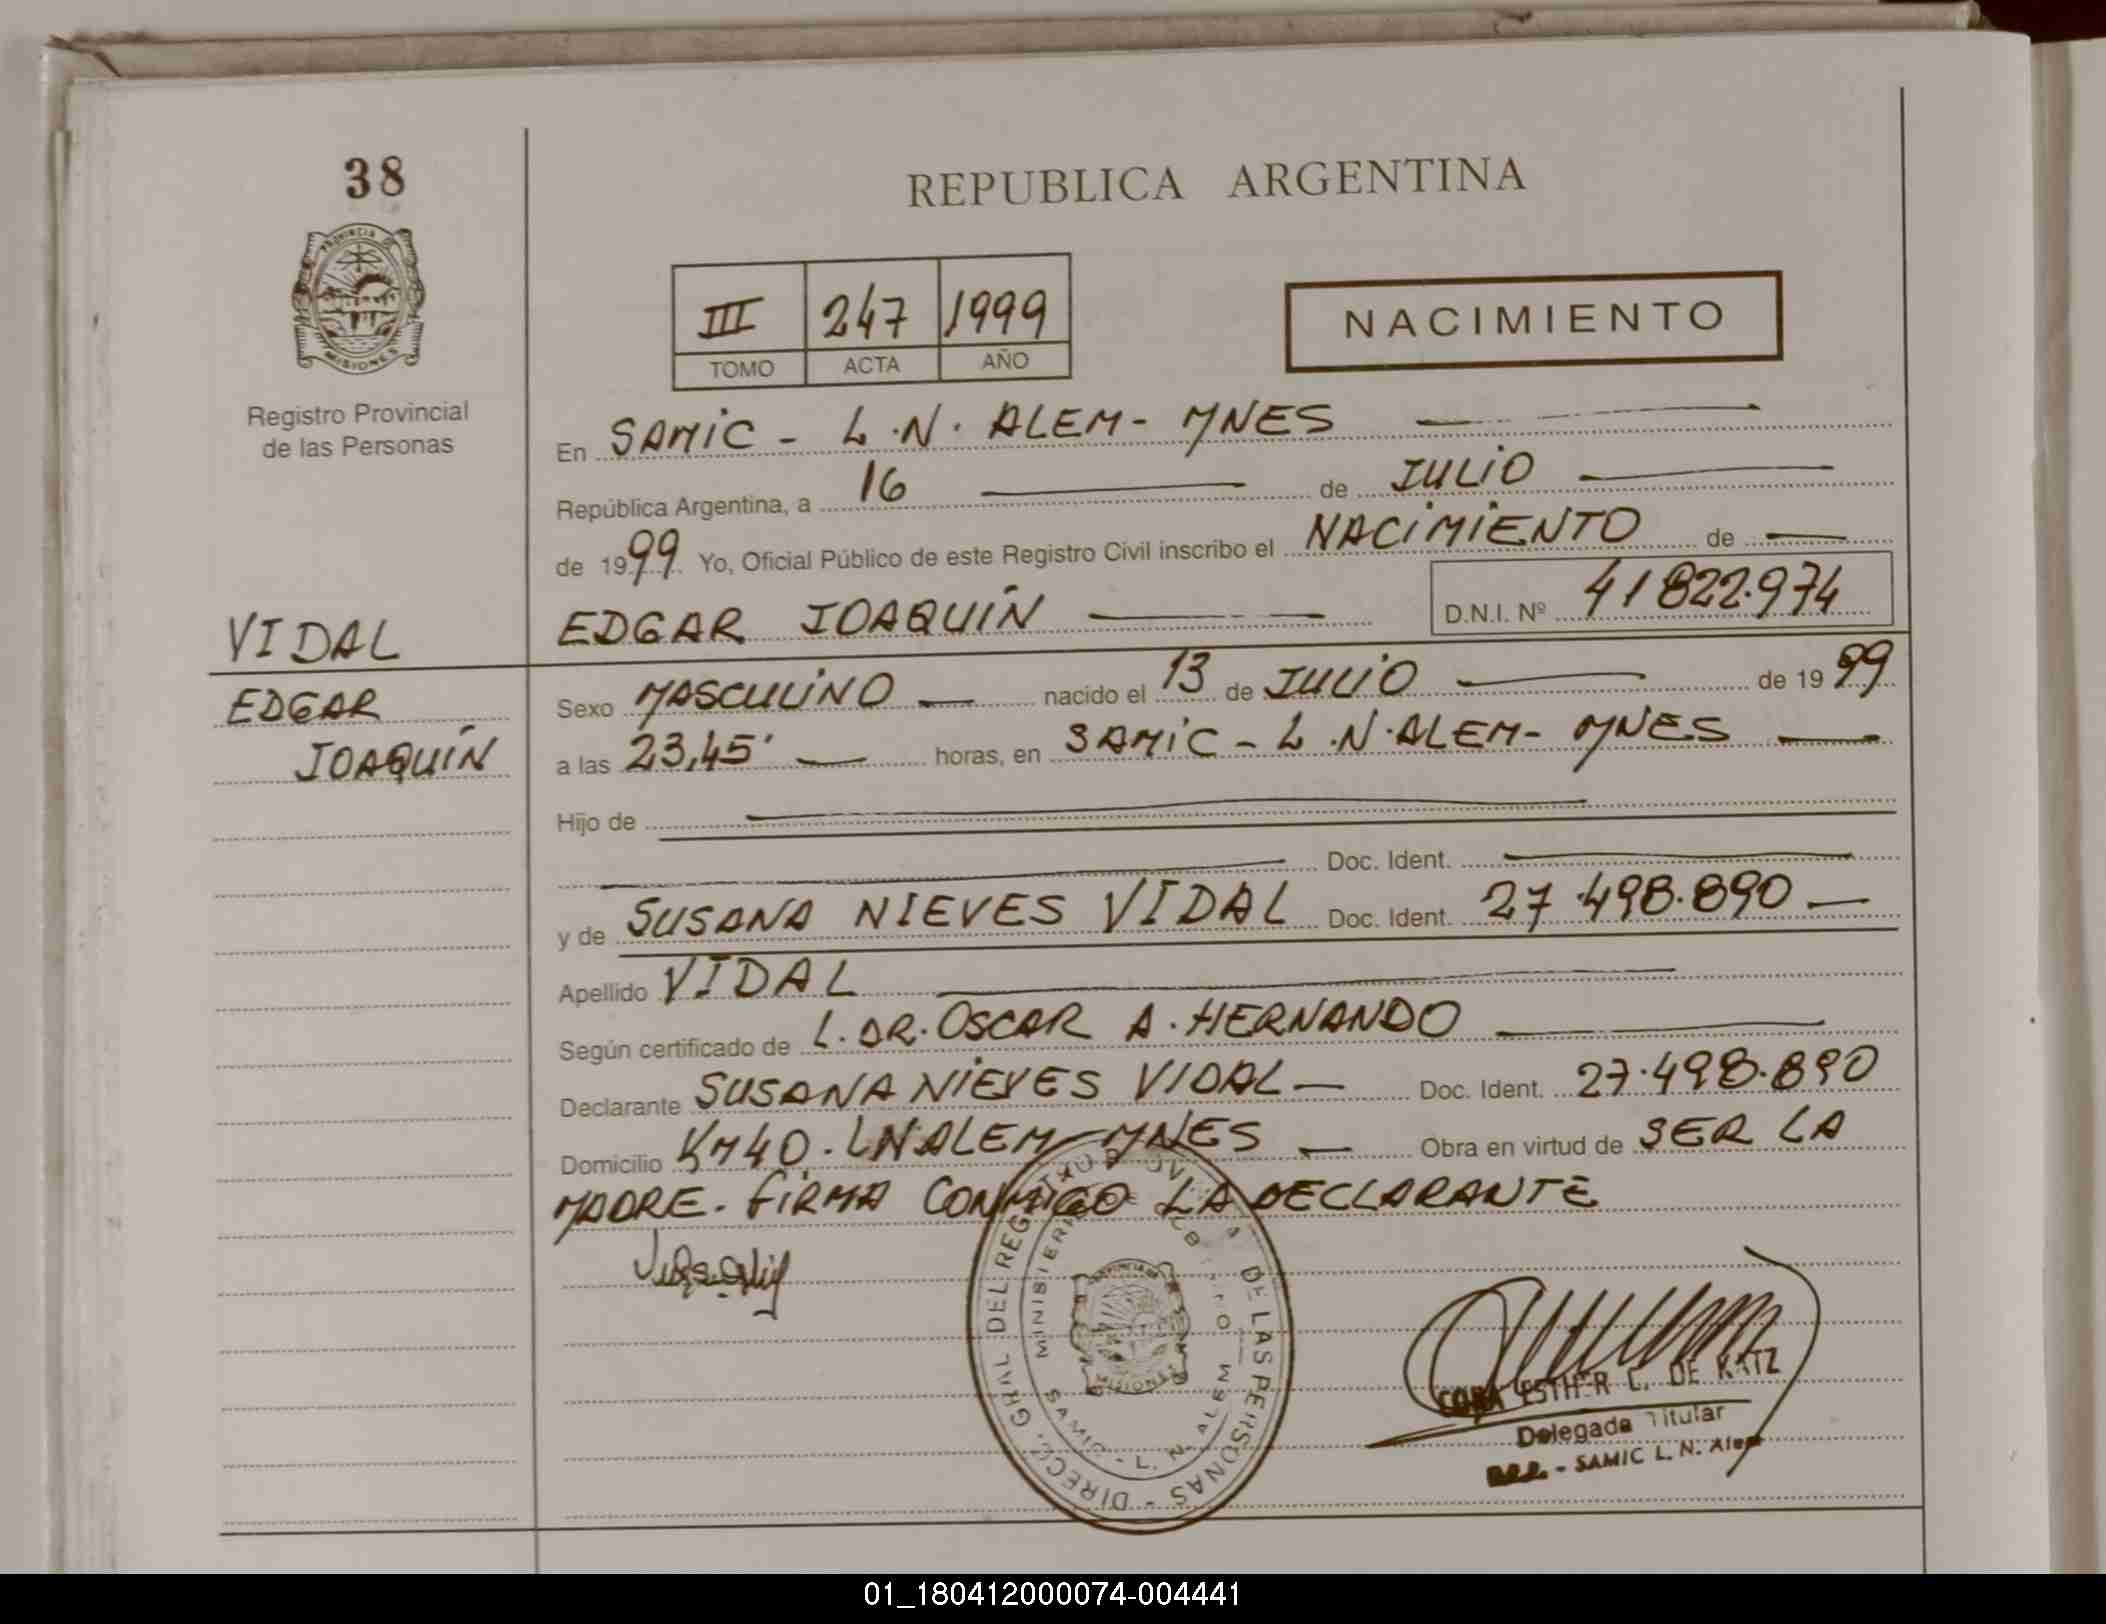 38
REPUBLICA ARGENTINA
PROVINCIA DE
MISIONES
III 247 1999
TOMO ACTA AÑO
NACIMIENTO
Registro Provincial
de las Personas
En SAMIC - L.N. ALEM - MNES
República Argentina, a 16 de JULIO
de 1999 Yo, Oficial Público de este Registro Civil inscribo el NACIMIENTO de
VIDAL
EDGAR JOAQUÍN D.N.I. Nº 41822.974
EDGAR
JOAQUÍN
Sexo MASCULINO nacido el 13 de JULIO de 1999
a las 23,45' horas, en SAMIC - L.N. ALEM - MNES
Hijo de
Doc. Ident.
y de SUSANA NIEVES VIDAL Doc. Ident. 27.498.890
Apellido VIDAL
Según certificado de L. DR. OSCAR A. HERNANDO
Declarante SUSANA NIEVES VIDAL Doc. Ident. 27.498.890
Domicilio KM 40. LN ALEM - MNES Obra en virtud de SER LA
MADRE. FIRMA CONMIGO LA DECLARANTE
DIRECC. GRAL DEL REGISTRO DE LAS PERSONAS
MINISTERIO DE GOBIERNO
SAMIC - L. N. ALEM
MISIONES
ESTHER C. DE KATZ
Delegada Titular
- SAMIC L. N. Alem
01_180412000074-004441